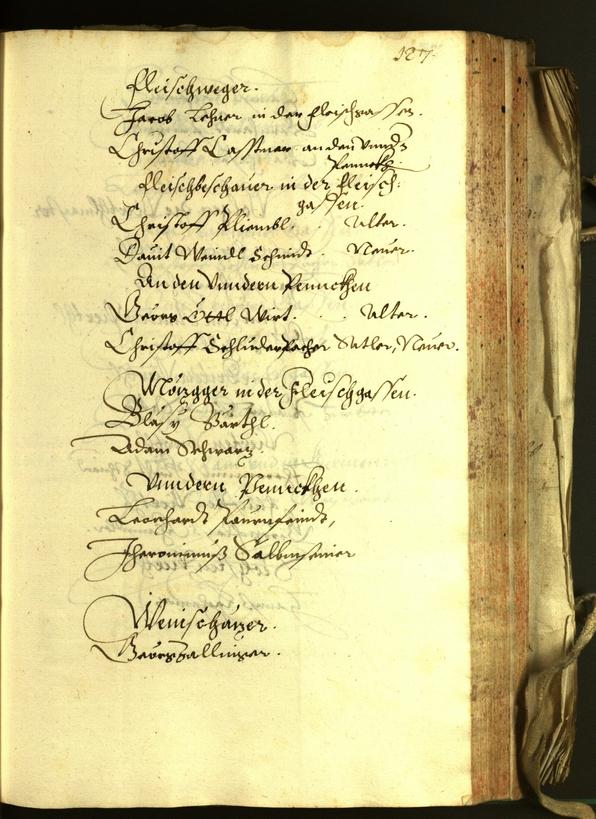 127.
Fleischweger.
Jacob Lehner in der Fleischgassen.
Christoff Casstner an den undern
Pennckhen
Fleischbeschauer in der Fleisch:
gassen.
Christoff Riembl. . Alter.
Dauit Waindl Schmidt. Neuer.
An den Vndern Pennckhen
Georg Öttl, Wirt. . . Alter.
Christoff Schluderpacher Satler, Neuer.
Mözgger in der Fleischgassen.
Blasy Barthl.
Adam Schwarz.
Vundern Pennckhen.
Leonhardt Paurnfeindt,
Jheronimuß
Weinschäzer.
Georg Zallinger.